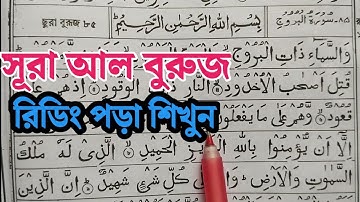 ছুরা বুরূজ ৮৫
بِسْمِ اللّٰهِ الرَّحْمٰنِ الرَّحِيْمِ
٨٥-سورة البروج
وَالسَّمَآءِ ذَاتِ الْبُرُوْجِ
সূরা আল বুরুজ
قُتِلَ اَصْحٰبُ الْاُخْدُوْدِ النَّارِ ذَاتِ الْوَقُوْدِ اِذْ هُمْ
রিডিং পড়া শিখুন
قُعُوْدٌ وَّهُمْ عَلٰى مَا يَفْعَلُوْنَ
اِلَّاۤ اَنْ يُّؤْمِنُوْا بِاللّٰهِ الْعَزِيْزِ الْحَمِيْدِ الَّذِىْ لَهٗ مُلْكُ
السَّمٰوٰتِ وَالْاَرْضِ وَاللّٰهُ عَلٰى كُلِّ شَىْءٍ شَهِيْدٌ اِنَّ الَّذِيْنَ